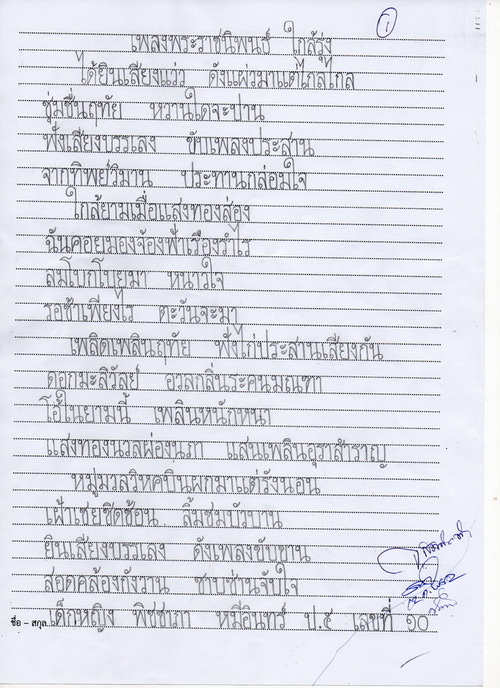 ๑
เพลงพระราชนิพนธ์ ใกล้รุ่ง
ได้ยินเสียงแว่ว ดังแผ่วมาแต่ไกลไกล
ชุ่มชื่นฤทัย หวานใดจะปาน
ฟังเสียงบรรเลง ขับเพลงประสาน
จากทิพย์วิมาน ประทานกล่อมใจ
ใกล้ยามเมื่อแสงทองส่อง
ฉันคอยมองจ้องฟ้าเรืองรำไร
ลมโบกโบยมา หนาวใจ
รอช้าเพียงไร ตะวันจะมา
เพลิดเพลินฤทัย ฟังไก่ประสานเสียงกัน
ดอกมะลิวัลย์ อวลกลิ่นระคนมณฑา
โอ้ในยามนี้ เพลินหนักหนา
แสงทองนวลผ่องนภา แสนเพลินอุราสำราญ
หมู่มวลวิหคบินผกมาแต่รังนอน
เฝ้าเชยชิดช้อน ลิ้มชมบัวบาน
ยินเสียงบรรเลง ดังเพลงขับขาน
สอดคล้องกังวาน ซาบซ่านจับใจ
ชื่อ - สกุล เด็กหญิง พิชชาภา หมื่อินทร์ ป.๕ เลขที่ ๑๐